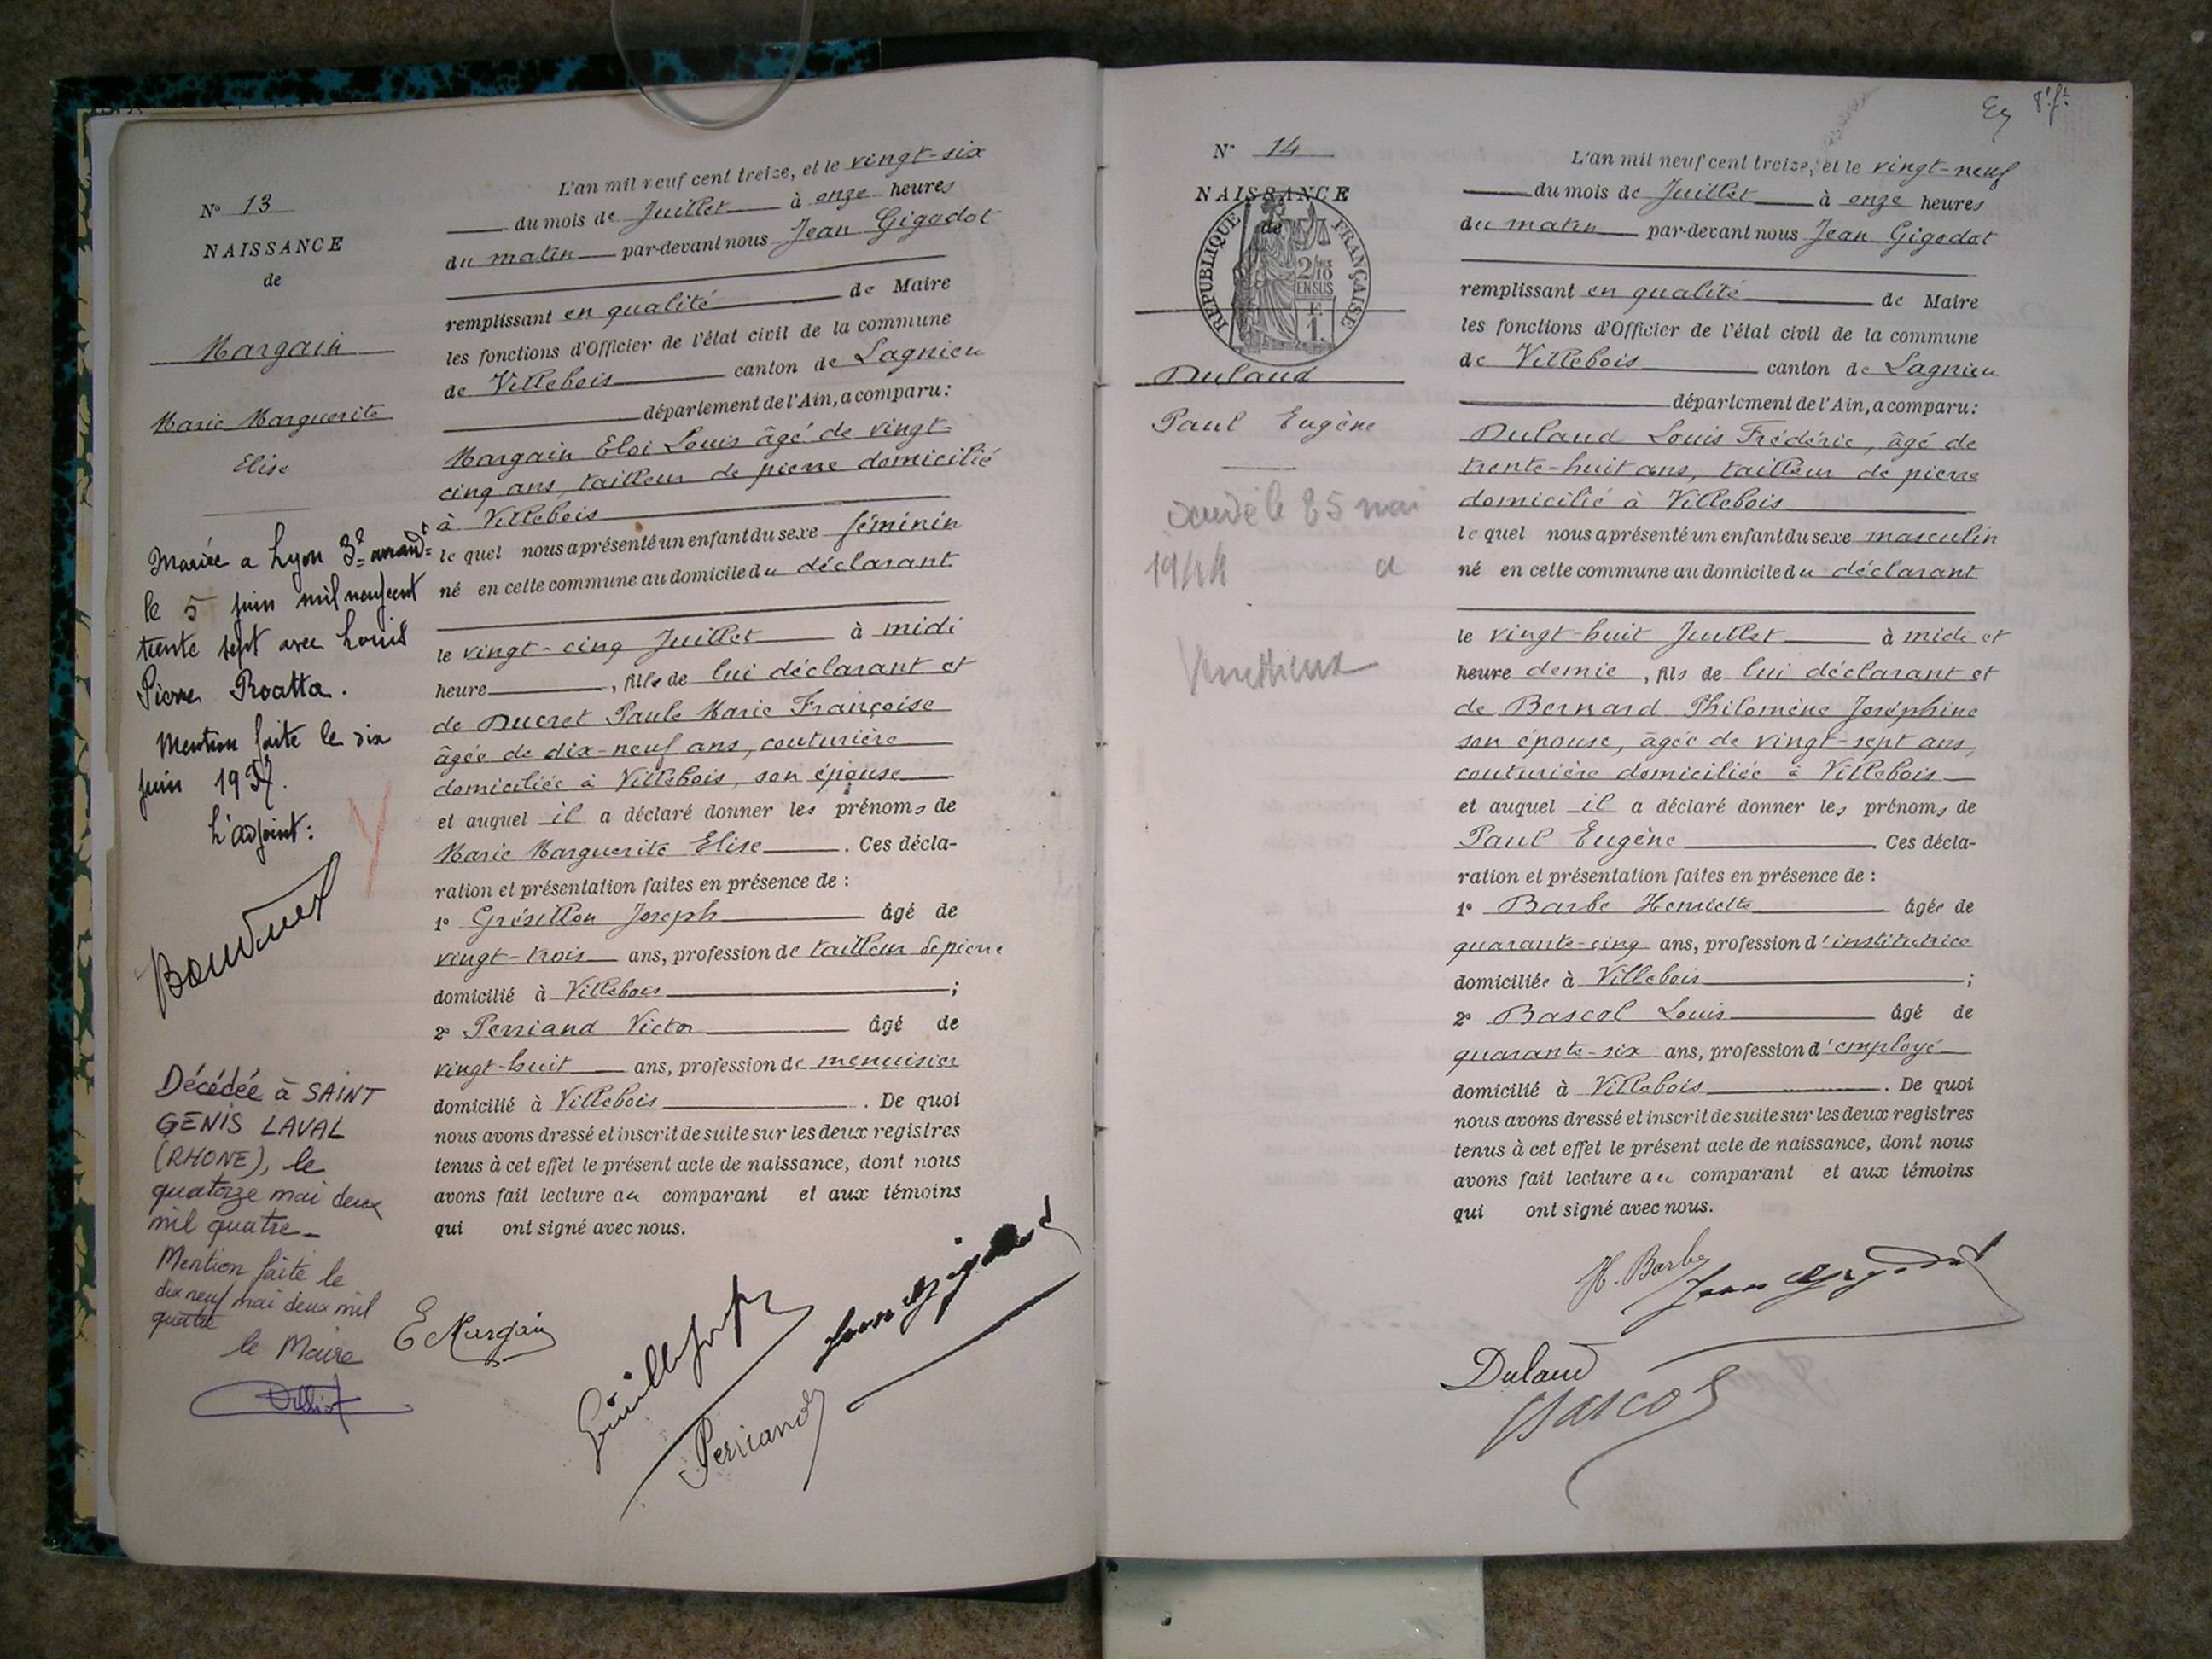 N° 13
NAISSANCE
de
Margain
Marie Marguerite
Elise
Mariée a Lyon 3e arrondt
le 5 juin mil neuf cent
trente sept avec Louis
Pierre Roatta.
Mention faite le six
juin 1937.
L'adjoint:
Décédée à SAINT
GENIS LAVAL
(RHONE), le
quatorze mai deux
mil quatre_
Mention faite le
dix neuf mai deux mil
quatre
le Maire
L'an mil neuf cent treize, et le vingt-six
du mois de Juillet à onze heures
du matin par-devant nous Jean Gigodot
remplissant en qualité de Maire
les fonctions d'Officier de l'état civil de la commune
de Villebois canton de Lagnieu
département de l'Ain, a comparu:
Margain Eloi Louis âgé de vingt-
cinq ans, tailleur de pierre domicilié
à Villebois
le quel nous a présenté un enfant du sexe féminin
né en cette commune au domicile du déclarant
le vingt-cinq Juillet à midi
heure , fille de lui déclarant et
de Ducret Paule Marie Françoise
âgée de dix-neuf ans, couturière
domiciliée à Villebois, son épouse
et auquel il a déclaré donner les prénoms de
Marie Marguerite Elise . Ces décla-
ration et présentation faites en présence de :
1° Grésillon Joseph âgé de
vingt-trois ans, profession de tailleur de pierre
domicilié à Villebois ;
2° Perriand Victor âgé de
vingt-huit ans, profession de menuisier
domicilié à Villebois . De quoi
nous avons dressé et inscrit de suite sur les deux registres
tenus à cet effet le présent acte de naissance, dont nous
avons fait lecture au comparant et aux témoins
qui ont signé avec nous.
E Margain
Perriand
N° 14
NAISSANCE
de
REPUBLIQUE FRANÇAISE
2/10
EN SUS
F.
1.
Dulaud
Paul Eugène
décédé le 25 mai
1944 a
Venissieux
L'an mil neuf cent treize, et le vingt-neuf
du mois de Juillet à onze heures
du matin par-devant nous Jean Gigodot
remplissant en qualité de Maire
les fonctions d'Officier de l'état civil de la commune
de Villebois canton de Lagnieu
département de l'Ain, a comparu:
Dulaud Louis Frédéric, âgé de
trente-huit ans, tailleur de pierre
domicilié à Villebois
le quel nous a présenté un enfant du sexe masculin
né en cette commune au domicile du déclarant
le vingt-huit Juillet à midi et
heure demie , fils de lui déclarant et
de Bernard Philomène Joséphine
son épouse, âgée de vingt-sept ans,
couturière domiciliée à Villebois
et auquel il a déclaré donner les prénoms de
Paul Eugène . Ces décla-
ration et présentation faites en présence de :
1° Barbe Henriette âgée de
quarante-cinq ans, profession d'institutrice
domiciliée à Villebois ;
2° Bascol Louis âgé de
quarante-six ans, profession d'employé
domicilié à Villebois . De quoi
nous avons dressé et inscrit de suite sur les deux registres
tenus à cet effet le présent acte de naissance, dont nous
avons fait lecture au comparant et aux témoins
qui ont signé avec nous.
H. Barbe
Jean Gigodot
Dulaud
Bascol